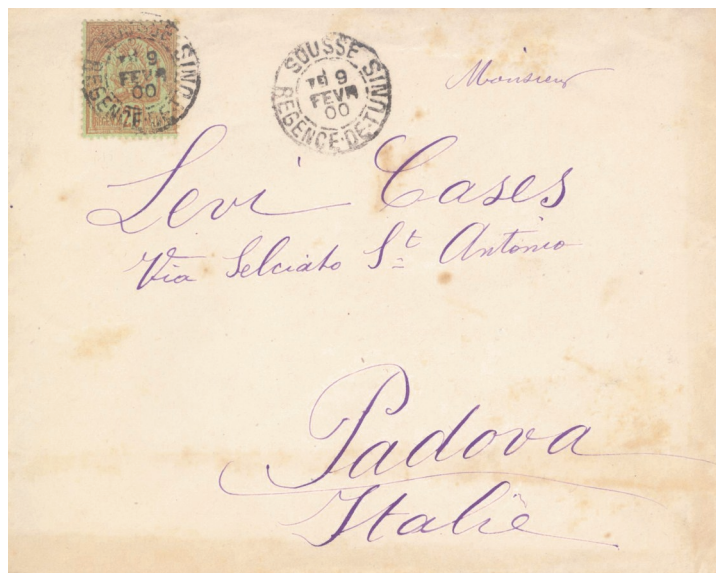 SOUSSE
9
FEVR
00
REGENCE-DE-TUN
SOUSSE
9
FEVR
00
REGENCE-DE-TUN
Monsieur
Levi Cases
Via Selciato St Antonio
Padova
Italie